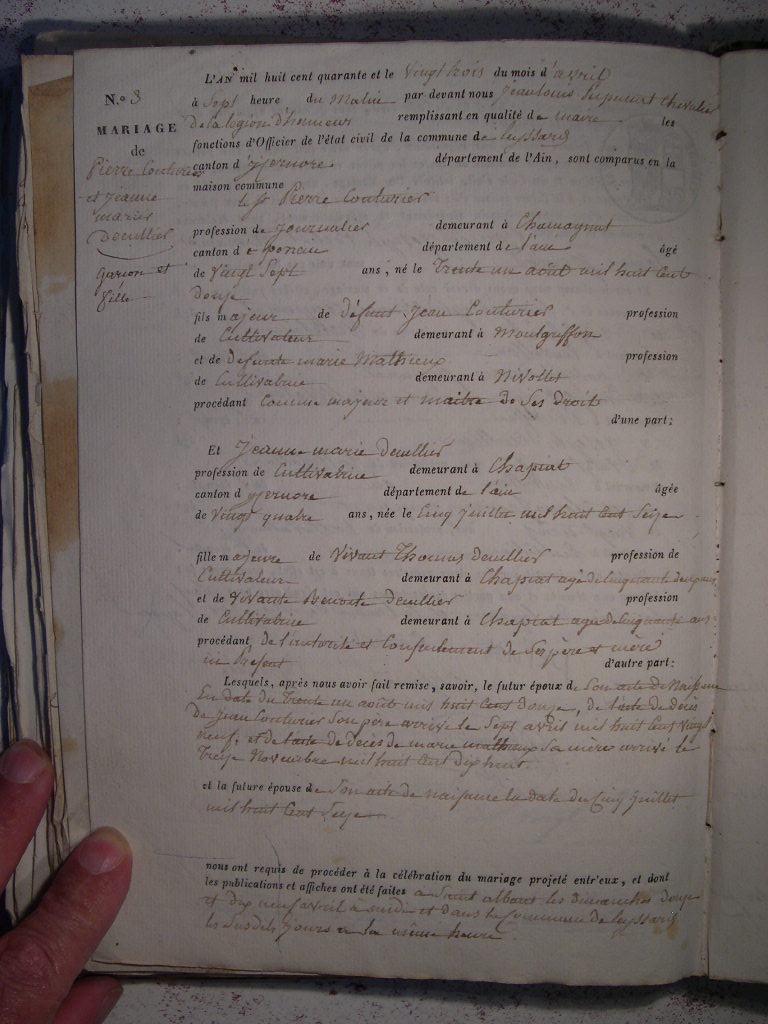 N.º 8
MARIAGE
de
Pierre Couturier
et jeanne
marier
Decullier
garçon et
fille
L'AN mil huit cent quarante et le Vingt trois du mois d'avril
à Sept heure du Matin par devant nous Jean louis chevalier
de la légion d'honneur remplissant en qualité de maire les
fonctions d'Officier de l'état civil de la commune de leyssard
canton d'yzernore département de l'Ain, sont comparus en la
maison commune
le sr Pierre Couturier
profession de journalier demeurant à Chamagnat
canton de poncin département de l'ain âgé
de Vingt Sept ans, né le Trente un août mil huit cent
douze
fils majeur de Défunt jean Couturier profession
de Cultivateur demeurant à Montgriffon
et de Defunte marie Mathieux profession
de Cultivatrice demeurant à Nivollet
procédant Comme majeur et maitre de Ses Droits
d'une part;
Et Jeanne marie Decullier
profession de Cultivatrice demeurant à Chapiat
canton d yzernore département de l'ain âgée
de Vingt quatre ans, née le Cinq juillet mil huit cent Seize
fille majeure de Vivant Thomas Decullier profession de
Cultivateur demeurant à Chapiat agé de Cinquante deux ans
et de Vivante Benoite Decullier profession
de Cultivatrice demeurant à Chapiat agée de Cinquante ans
procédant de l'autorité et Consentement de Ses père et mère
ici Présent d'autre part:
Lesquels, après nous avoir fait remise, savoir, le futur époux de Son acte de Naissance
En date du Trente un août mil huit Cent douze, de l'acte de décès
De jean Couturier Son père arrivé le Sept avril mil huit Cent Vingt
neuf, et de l'acte de décès de marie mathieux Sa mère arrivé le
Treize Novembre mil huit Cent dix huit
et la future épouse de Son acte de naissance en date du Cinq juillet
mil huit Cent Seize
nous ont requis de procéder à la célébration du mariage projeté entr'eux, et dont
les publications et affiches ont été faites a Saint alban les dimanches douze
et dix neuf avril à midi et dans la Commune de leyssard
les Susdits jours a la même heure